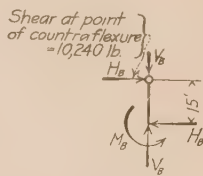 Shear at point
of countraflexure
= 10,240 lb.
V_B
H_B
15'
M_B
H_B
V_B